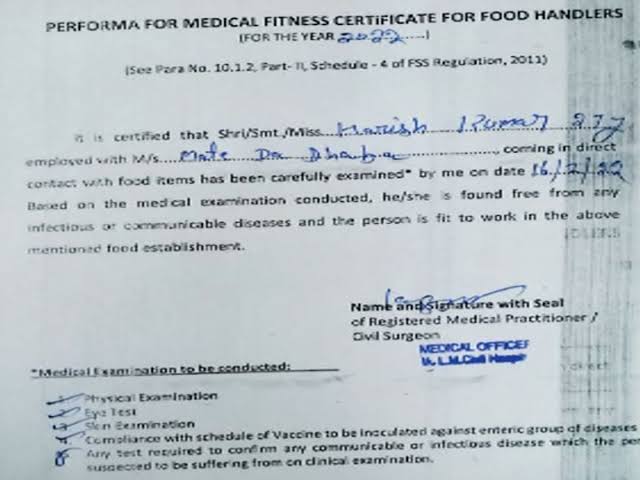 PERFORMA FOR MEDICAL FITNESS CERTIFICATE FOR FOOD HANDLERS
(FOR THE YEAR 2022......)
(See Para No. 10.1.2, Part- II, Schedule - 4 of FSS Regulation, 2011)
It is certified that Shri/Smt./Miss...Harish Kumar
employed with M/s... Da Dhaba..............................., coming in direct
contact with food items has been carefully examined* by me on date 16/2/22
Based on the medical examination conducted, he/she is found free from any
infectious or communicable diseases and the person is fit to work in the above
mentioned food establishment.
Name and Signature with Seal
of Registered Medical Practitioner /
Civil Surgeon
MEDICAL OFFICER
*Medical Examination to be conducted:
1. Physical Examination
2. Eye Test
3. Skin Examination
4. Compliance with schedule of Vaccine to be inoculated against enteric group of diseases
5. Any test required to confirm any communicable or infectious disease which the
suspected to be suffering from on clinical examination.